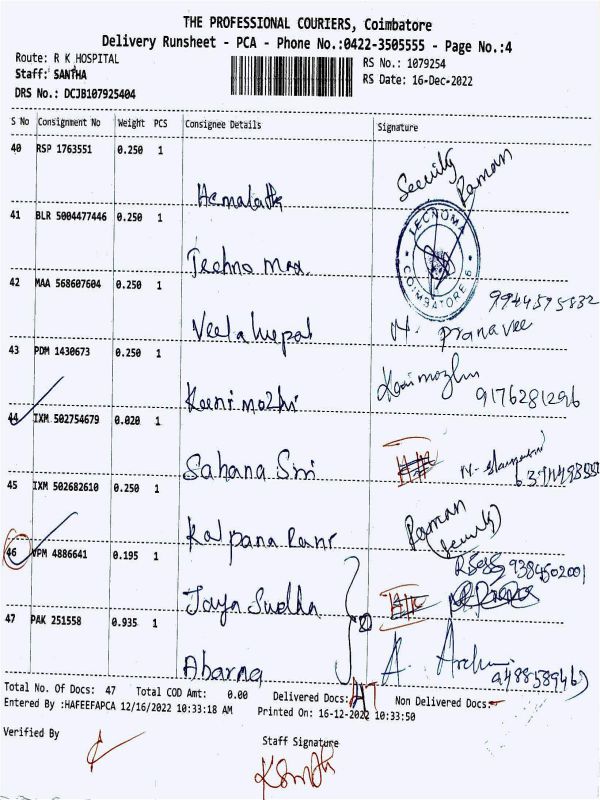 THE PROFESSIONAL COURIERS, Coimbatore
Delivery Runsheet - PCA - Phone No.:0422-3505555 - Page No.:4
Route: R K HOSPITAL
RS No.: 1079254
Staff: SANTHA
RS Date: 16-Dec-2022
DRS No.: DCJB107925404
S No Consignment No Weight PCS Consignee Details Signature
40 RSP 1763551 0.250 1
Security Raman
Hemalatha
41 BLR 5004477446 0.250 1
TECNOMA
COIMBATORE 6
Techno Max.
42 MAA 568607604 0.250 1
Veelalwepat 9944595832
N. Pranavee
43 PDM 1430673 0.250 1
Kanimozhi
Kanimozhi 9176281296
44 IXM 502754679 0.020 1
Sahana Sri
45 IXM 502682610 0.250 1
Raman (Security)
Kalpana Rani
46 VPM 4886641 0.195 1
9384502001
Jaya Sudha
47 PAK 251558 0.935 1
Abarna A. Archu
9488589467
Total No. Of Docs: 47 Total COD Amt: 0.00 Delivered Docs: 47 Non Delivered Docs:-
Entered By :HAFEEFAPCA 12/16/2022 10:33:18 AM Printed On: 16-12-2022 10:33:50
Verified By
Staff Signature